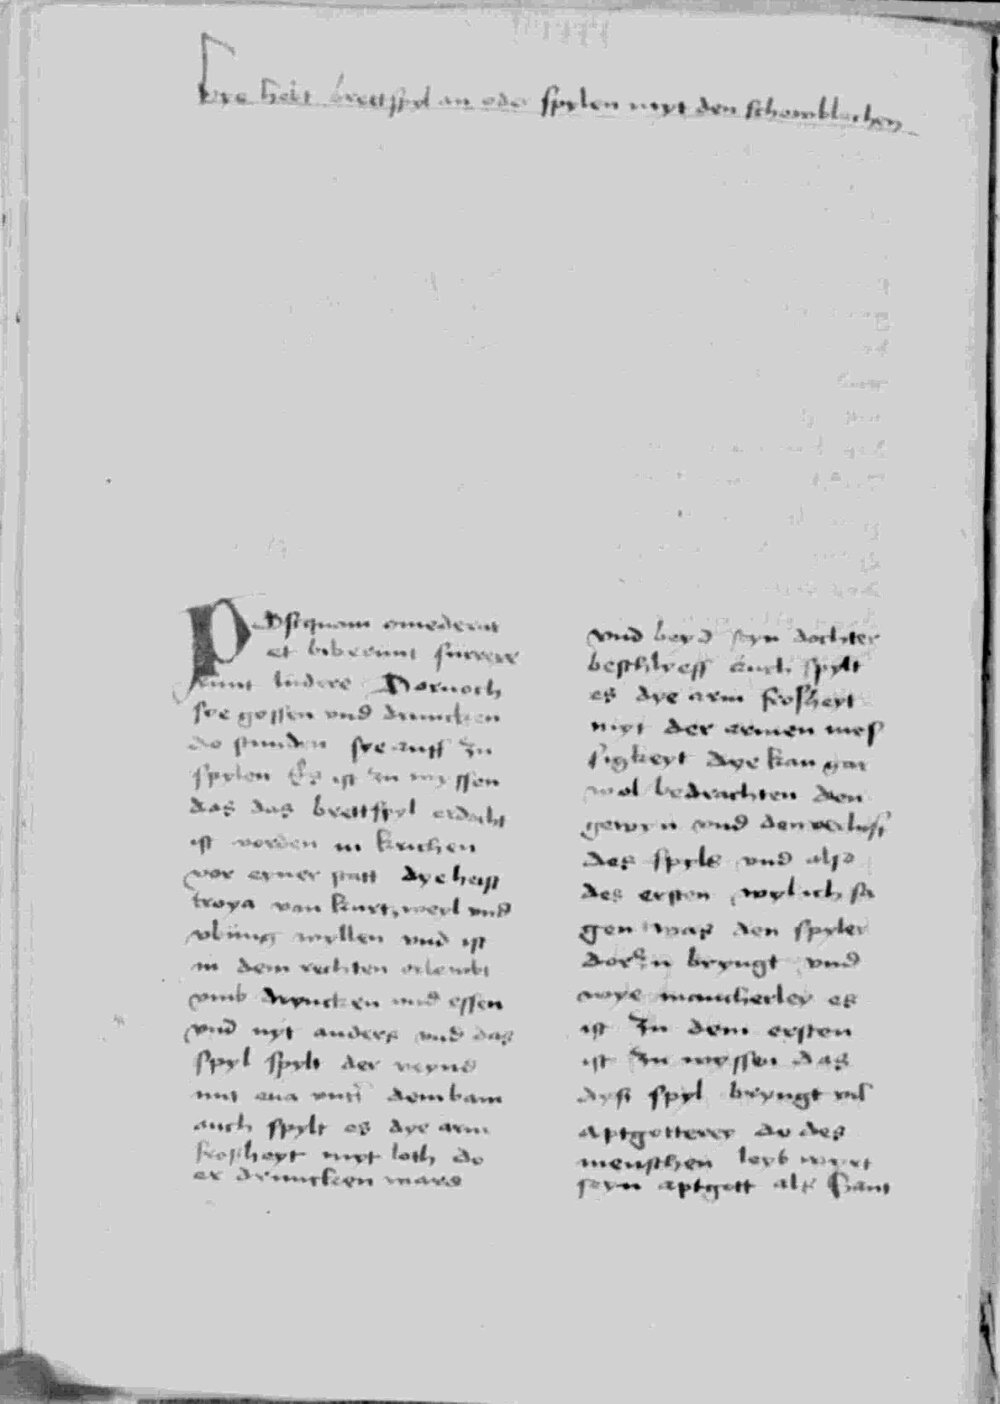 hye hebt brettspyl an oder spylen myt den schomblachen
Postquam comederat
et biberunt surrexe
runt ludere Dornoch
sye gossen vnd druncken
do stunden sye auff zu
spylen Es ist zu wyssen
das das brettspyl erdocht
ist worden in krichen
vor eyner statt dye heist
troya van kurtzweyl vnd
vbung wyllen vnd ist
in dem rechten erlewbt
vmb dryncken vnd essen
vnd nyt anders vnd das
spyl spylt der veynd
mit eua dem bam
auch spylt es dye arm
frosheyt myt loth do
er druncken ward
vnd beyd seyn dochter
beschlyeff auch spylt
es dye arm frosheyt
myt der armen mes
sigkeyt dye kan gar
wol bedrachten den
gewyn vnd den verlust
des spyls vnd also
des ersten wyl ich sa
gen was den spyler
dorzu bryngt vnd
wye mancherley es
ist Zu dem ersten
ist zu wyssen das
dyss spyl bryngt vil
aptgotterey do des
menschen leyb wyrt
seyn aptgott als Sant